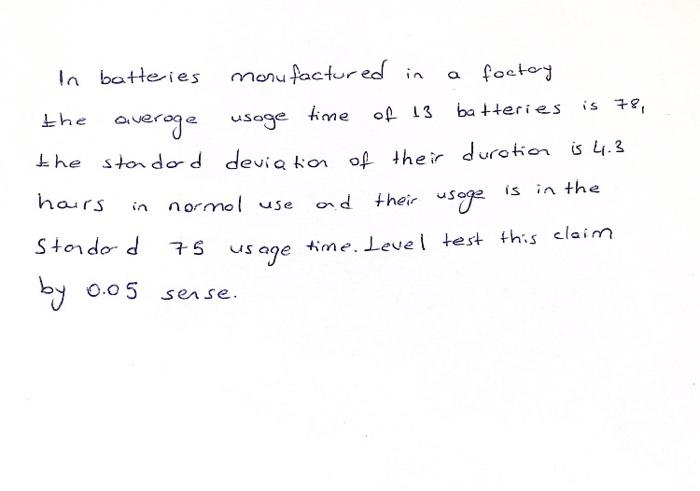 In batteries manufactured in a factory
the average usage time of 13 batteries is 78,
the standard deviation of their duration is 4.3
hours in normal use and their usage is in the
Standard 75 usage time. Level test this claim
by 0.05 sense.